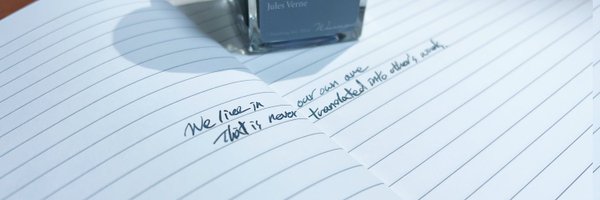 Jules Verne
We live in our own
That is never translated into other's